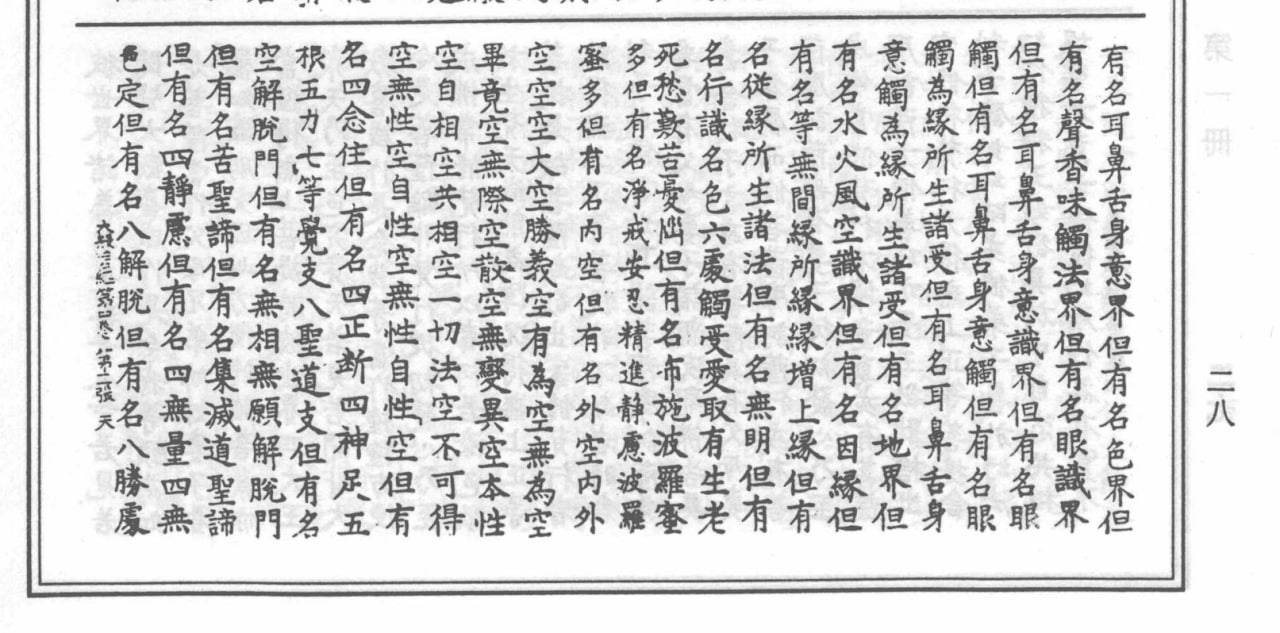 有名耳鼻舌身意界但有名色界但
有名聲香味觸法界但有名眼識界
但有名耳鼻舌身意識界但有名眼
觸但有名耳鼻舌身意觸但有名眼
觸為緣所生諸受但有名耳鼻舌身
意觸為緣所生諸受但有名地界但
有名水火風空識界但有名因緣但
有名等無間緣所緣緣增上緣但有
名從緣所生諸法但有名無明但有
名行識名色六處觸受愛取有生老
死愁歎苦憂惱但有名布施波羅蜜
多但有名淨戒安忍精進靜慮波羅
蜜多但有名內空但有名外空內外
空空空大空勝義空有為空無為空
畢竟空無際空散空無變異空本性
空自相空共相空一切法空不可得
空無性空自性空無性自性空但有
名四念住但有名四正斷四神足五
根五力七等覺支八聖道支但有名
空解脫門但有名無相無願解脫門
但有名苦聖諦但有名集滅道聖諦
但有名四靜慮但有名四無量四無
色定但有名八解脫但有名八勝處
第二張 天
第一冊
二八